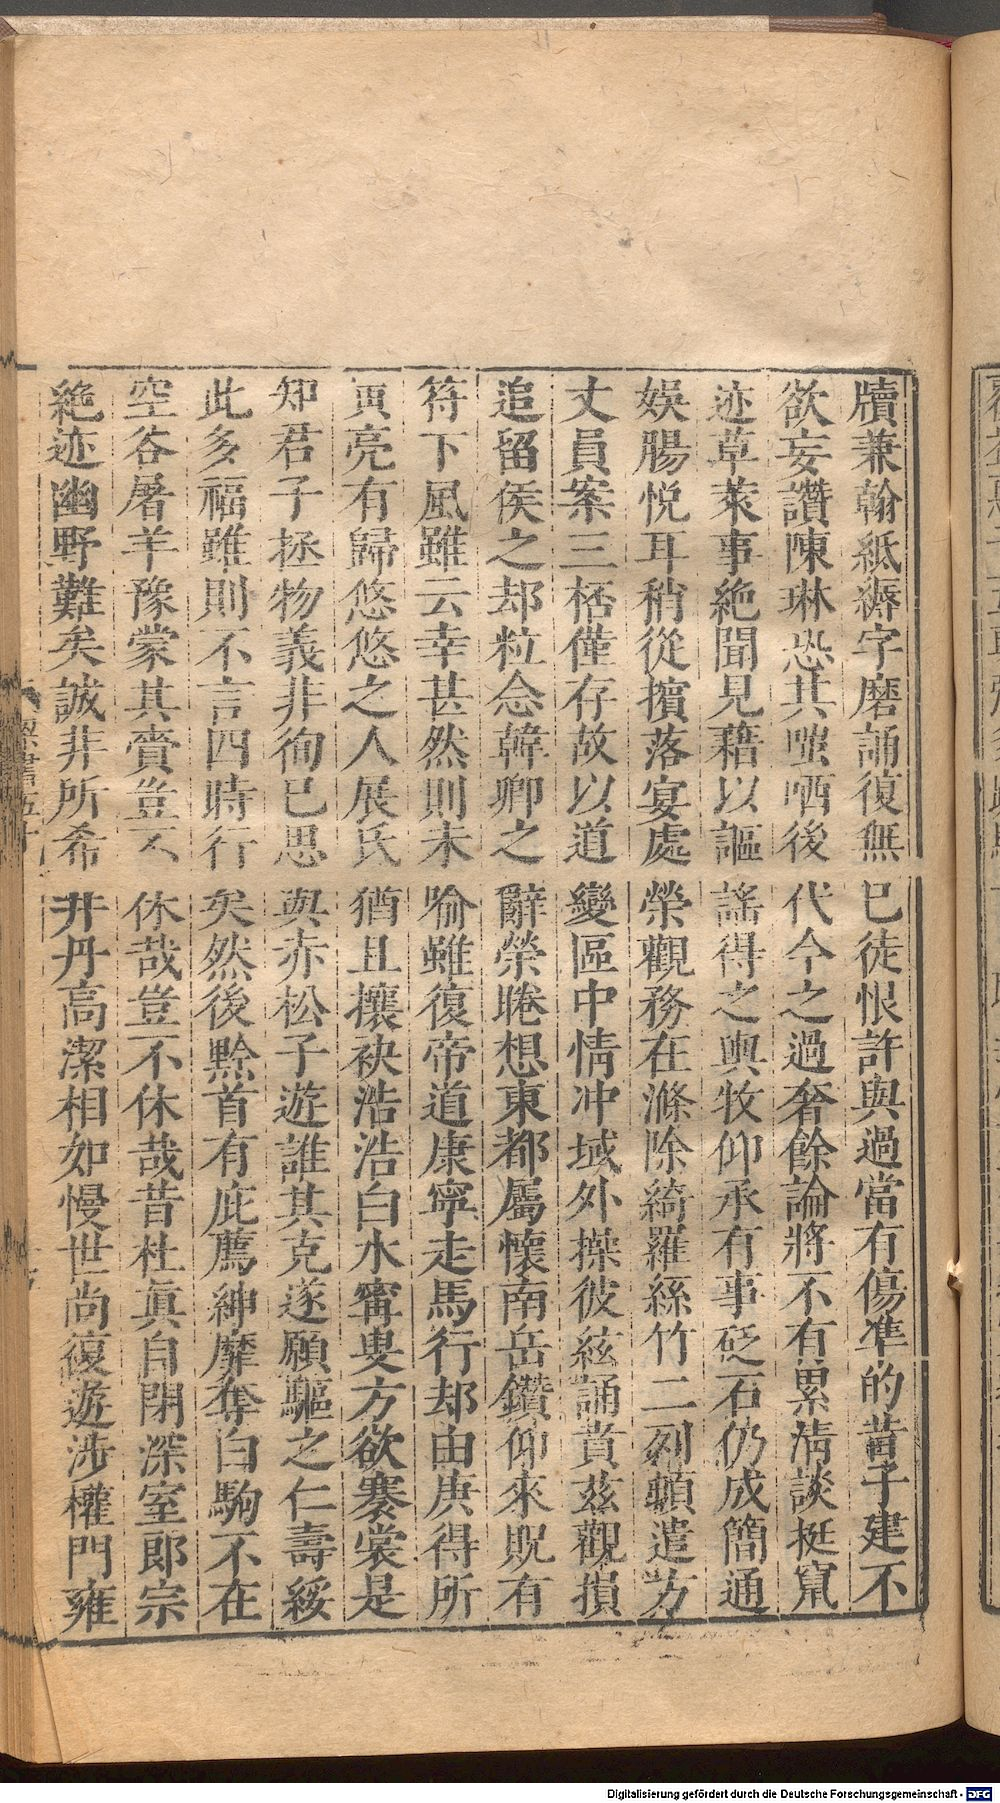 牘兼翰紙縟字磨誦復無已徒恨許與過當有傷準的昔子建不
欲妄讚陳琳恐其嗤哂後代今之過奢餘論將不有累淸談挺竄
迹草萊事絶聞見藉以謳謠得之輿牧仰承有事砭石仍成簡通
娛腸悅耳稍從擯落宴處榮觀務在滌除綺羅絲竹二列頓遣方
丈員案三桮僅存故以道變區中情冲域外操彼絃誦賁茲觀損
追留侯之却粒念韓卿之辭榮睠想東都屬懷南岳鑽仰來貺有
符下風雖云幸甚然則未喻雖復帝道康寧走馬行却由庚得所
寅亮有歸悠悠之人展氏猶且攘袂浩浩白水甯叟方欲褰裳是
知君子拯物義非徇已思與赤松子遊誰其克遂願驅之仁壽綏
此多福雖則不言四時行矣然後黔首有庇薦紳靡奪白駒不在
空谷屠羊豫蒙其賚豈不休哉豈不休哉昔杜眞自閉深室郎宗
絶迹幽野難矣誠非所希井丹高潔相如慢世尚復遊涉權門雍
梁書五十
Digitalisierung gefördert durch die Deutsche Forschungsgemeinschaft - DFG